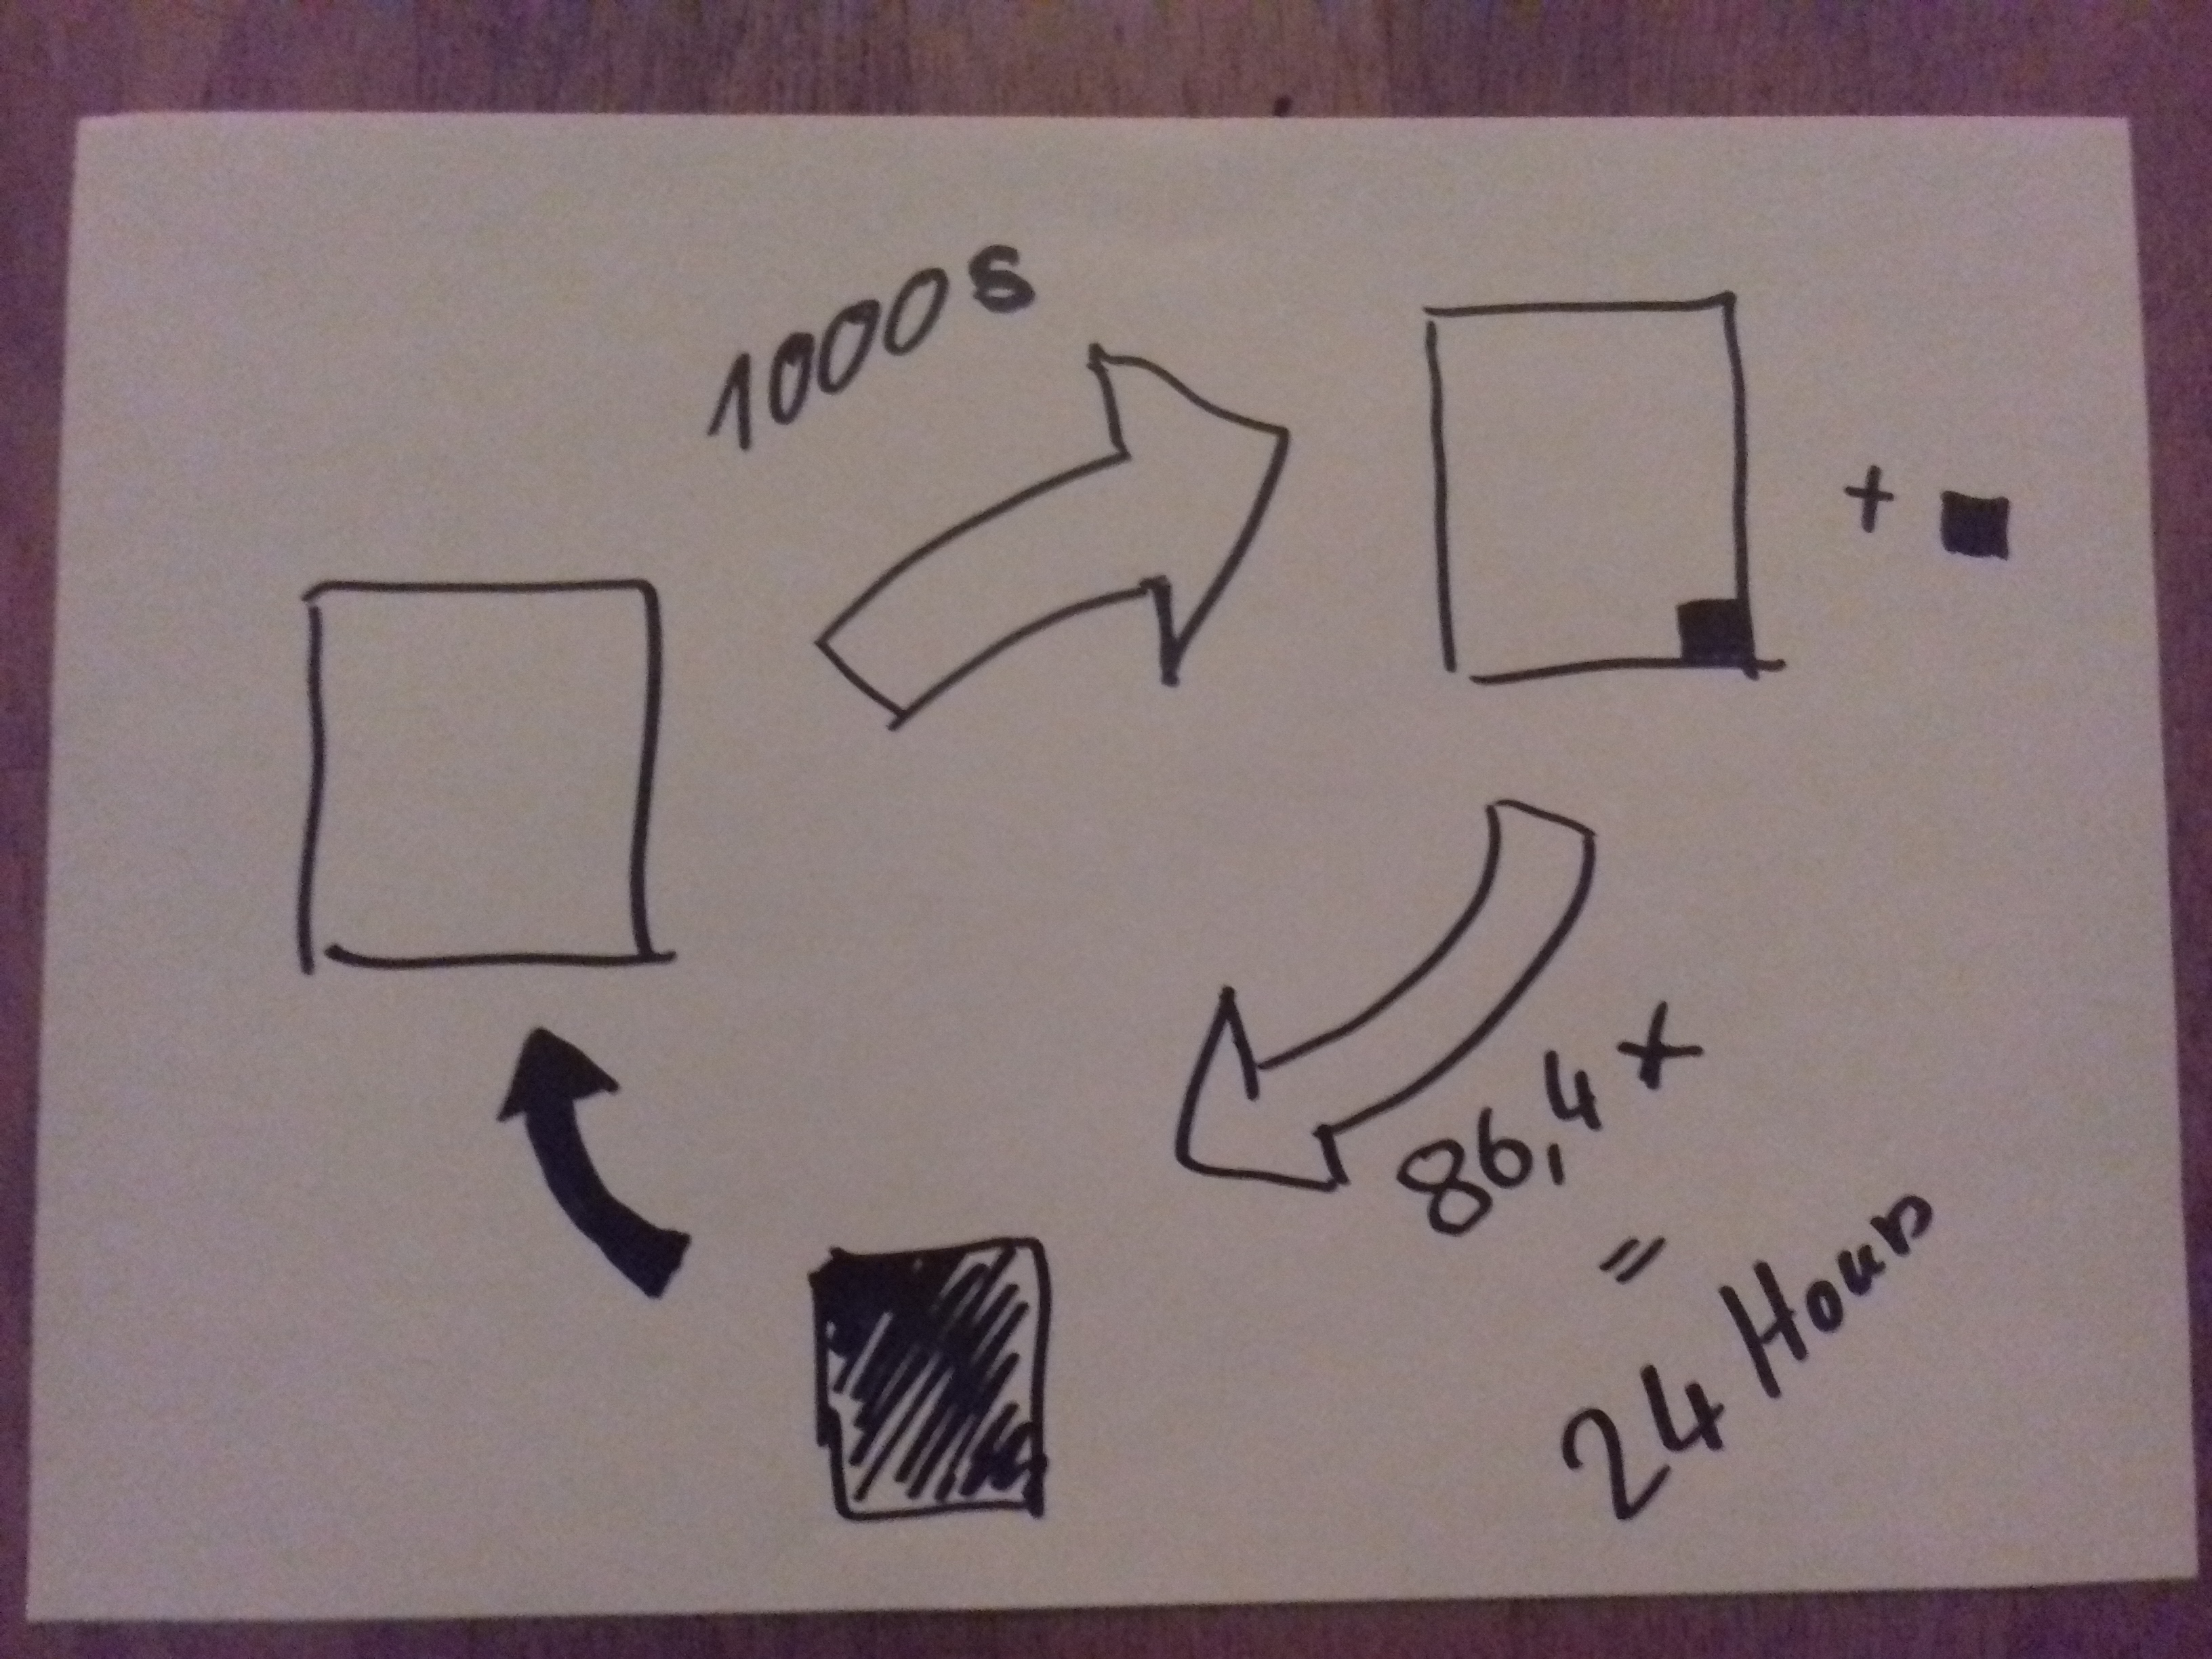 1000s
+
86,4 x
=
24 Hours